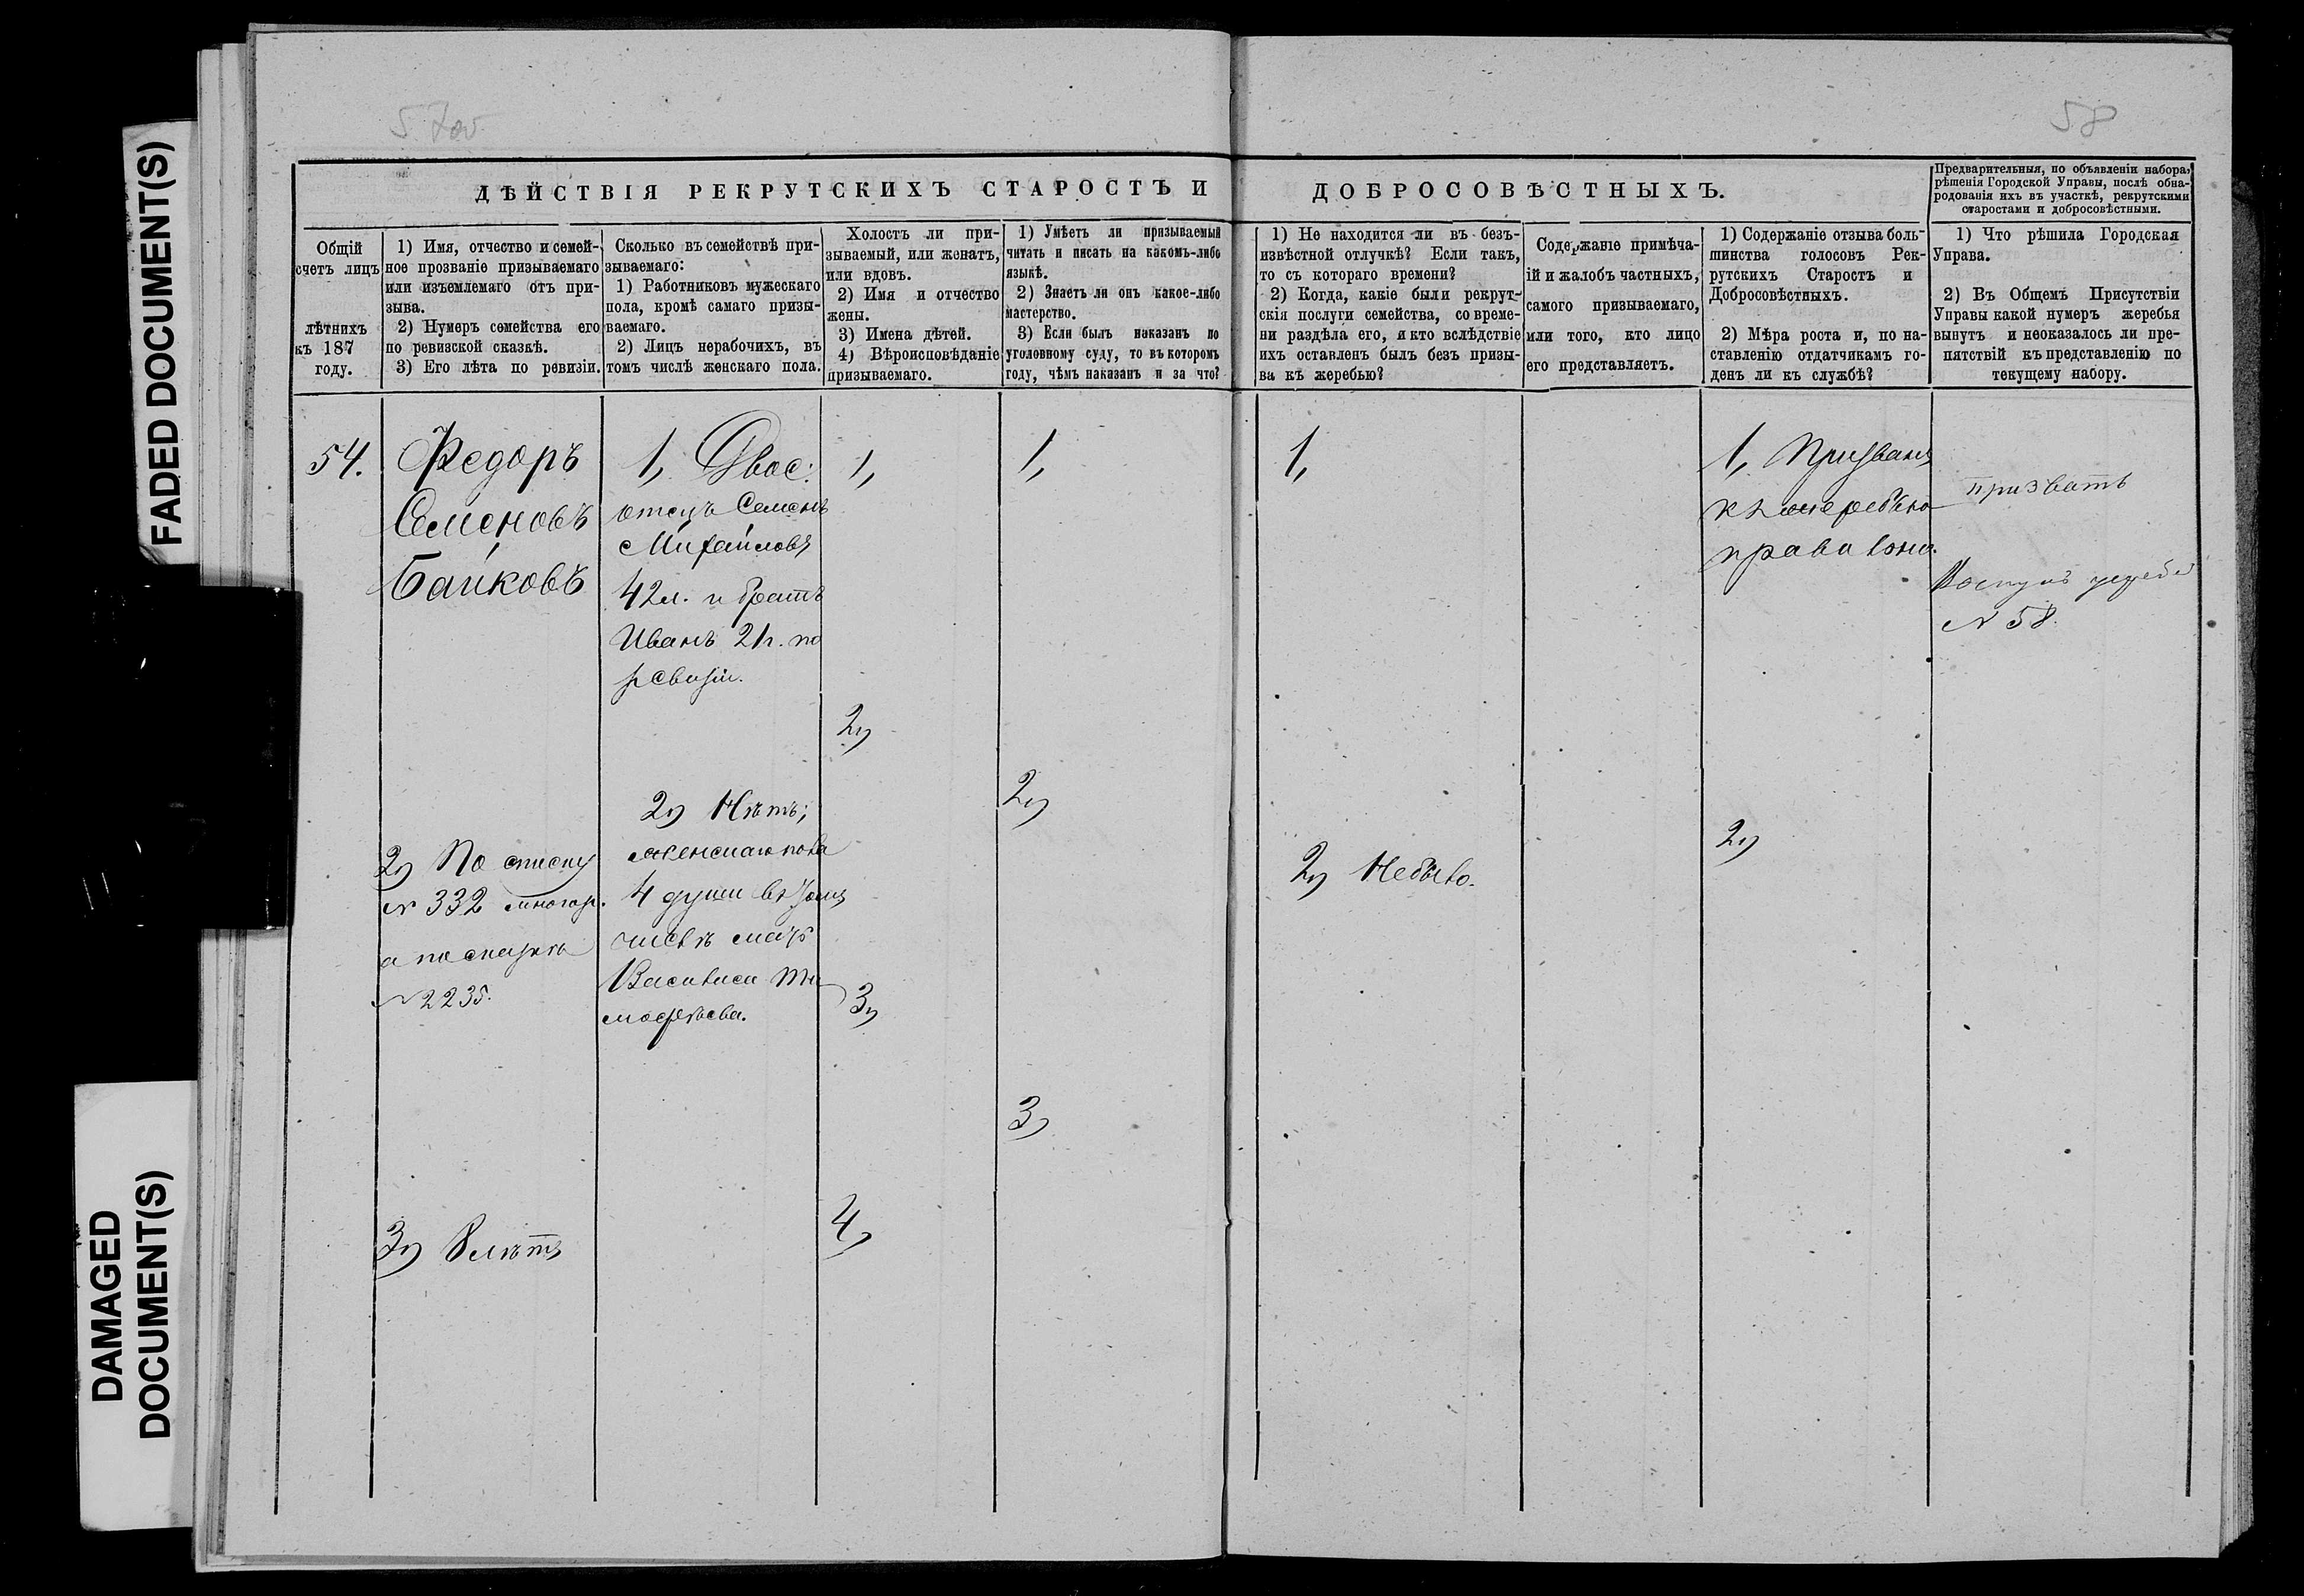 FADED DOCUMENT(S)
DAMAGED
DOCUMENT(S)
57об
58
ДѢЙСТВІЯ РЕКРУТСКИХЪ СТАРОСТЪ И ДОБРОСОВѢСТНЫХЪ.
Предварительныя, по объявленіи набора,
рѣшенія Городской Управы, послѣ обна-
родованія ихъ въ участкѣ, рекрутскими
старостами и добросовѣстными.
Общій
счетъ лицъ
лѣтнихъ
къ 187
году.
1) Имя, отчество и семей-
ное прозваніе призываемаго
или изъемлемаго отъ при-
зыва.
2) Нумеръ семейства его
по ревизской сказкѣ.
3) Его лѣта по ревизіи.
Сколько въ семействѣ при-
зываемаго:
1) Работниковъ мужескаго
пола, кромѣ самаго призы-
ваемаго.
2) Лицъ нерабочихъ, въ
томъ числѣ женскаго пола.
Холостъ ли при-
зываемый, или женатъ,
или вдовъ.
2) Имя и отчество
жены.
3) Имена дѣтей.
4) Вѣроисповѣданіе
призываемаго.
1) Умѣетъ ли призываемый
читать и писать на какомъ-либо
языкѣ.
2) Знаетъ ли онъ какое-либо
мастерство.
3) Если былъ наказанъ по
уголовному суду, то въ которомъ
году, чѣмъ наказанъ и за что?
1) Не находится ли въ безъ-
извѣстной отлучкѣ? Если такъ,
то съ котораго времени?
2) Когда, какіе были рекрут-
скія послуги семейства, со време-
ни раздѣла его, и кто вслѣдствіе
ихъ оставленъ былъ безъ призы-
ва къ жеребью?
Содержаніе примѣча-
ій и жалобъ частныхъ,
самого призываемаго,
или того, кто лицо
его представляетъ.
1) Содержаніе отзыва боль-
шинства голосовъ Рек-
рутскихъ Старостъ и
Добросовѣстныхъ.
2) Мѣра роста и, по на-
ставленію отдатчикамъ го-
денъ ли къ службѣ?
1) Что рѣшила Городская
Управа.
2) Въ Общемъ Присутствіи
Управы какой нумеръ жеребья
вынутъ и неоказалось ли пре-
пятствій къ представленію по
текущему набору.
54.
Федоръ
Семеновъ
Байковъ
2) По списку
№ 332 многор.
а по сказкѣ
№ 2235.
3) 8 лѣтъ
1, Двое:
отецъ Семенъ
Михайловъ
42 л. и братъ
Иванъ 21 г. по
ревизіи.
2) Нѣтъ;
женскаго пола
4 души въ томъ
числѣ мать
Василиса Ти
мофѣева.
1,
2)
3)
4)
1,
2)
3)
1,
2) Небыло.
1, Призванъ
къ жеребью
2)
призвать
№ 58.